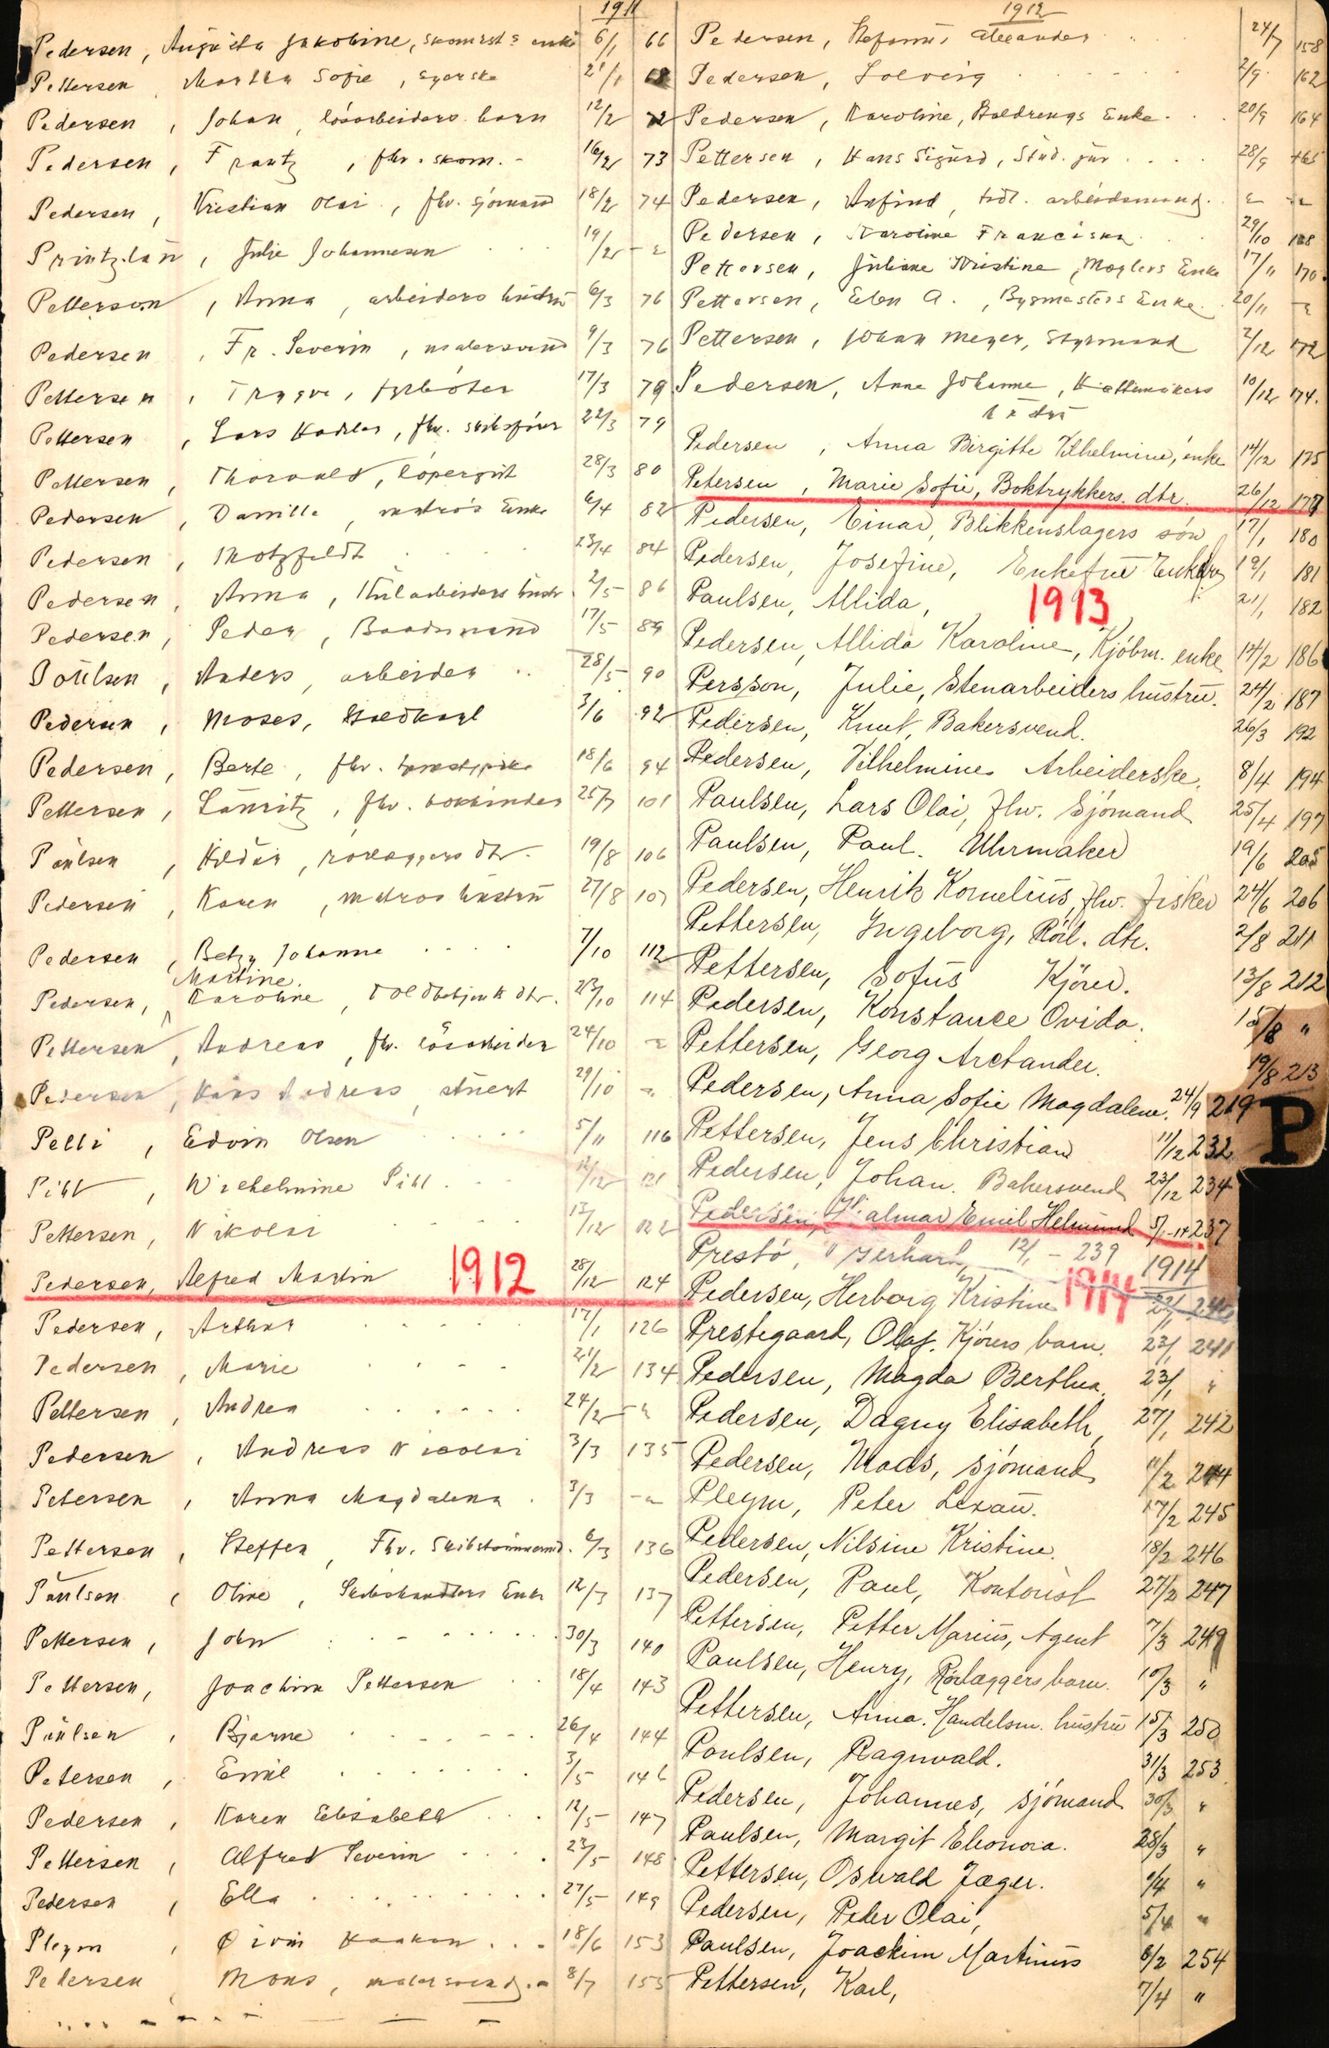 1911
Pedersen, Augusta Jakobine, skomest.s enke 6/1 66
Pettersen, Martha Sofie, syerske 21/1 68
Pedersen, Johan, lösarbeiders barn 12/2 72
Pedersen, Frantz, fhv. skom. 16/2 73
Pedersen, Kristian Olai, fhv. sjömand 18/2 74
Printzlau, Julie Johannesen 19/2 - "
Petterson, Anna, arbeiders hustru 6/3 76
Pedersen, Fr. Severin, malersvend 9/3 76
Pettersen, Trygve, fyrböter 17/3 79
Pettersen, Lars, fhv. skibsförer 22/3 79
Pettersen, Thorvald, löpergut 28/3 80
Pedersen, Danille, matros Enke 6/4 82
Pedersen, Motzfeldt 23/4 84
Pedersen, Anna, Kularbeiders hustr 2/5 86
Pedersen, Peder, Baadsmand 17/5 89
Poulsen, Anders, arbeider 28/5 90
Pedersen, Moses, 3/6 92
Pedersen, Berte, fhv. 18/6 94
Pettersen, Lauritz, fhv. bokbinder 25/7 101
Paulsen, Hildur, rörlæggers dtr. 19/8 106
Pedersen, Karen, matros hustru 27/8 107
Pedersen, Betzy Johanne 7/10 112
Pedersen, Martine Karoline, Toldbetjent dtr. 23/10 114
Pettersen, Andreas, fhv. lösarbeider 24/10 "
Pedersen, Hans Andreas, stuert 29/10 "
Pelli, Edvin Olsen 5/11 116
Pihl, Wilhelmine Pihl 12/12 121
Pettersen, Nikolai 13/12 122
Pedersen, Alfred Martin 28/12 124
1912
Pedersen, Arthur 17/1 126
Pedersen, Marie 21/2 134
Pettersen, Andrea 24/2 - "
Pedersen, Andreas Nicolai 3/3 135
Petersen, Anna Magdalena 3/3 - "
Pettersen, Steffen, Fhv. Skibstömmermd. 6/3 136
Paulsen, Oline, Skibshandlers Enke 12/3 137
Pettersen, John 30/3 140
Pettersen, Joachim Pettersen 18/4 143
Paulsen, Bjarne 26/4 144
Petersen, Emil 3/5 146
Pedersen, Karen Elisabeth 12/5 147
Pettersen, Alfred Severin 23/5 148
Pedersen, Ella 27/5 149
Pleym, Öivin Haakon 18/6 153
Pedersen, Mons, malersvend 8/7 155
1912
Pedersen, Stefanus Alexander 24/7 158
Pedersen, Solveig 2/9 162
Pedersen, Karoline, Boldrengs Enke 20/9 164
Pettersen, Hans Sigurd, Stud. jur 28/9 165
Pedersen, Arfind, tidl. arbeidsmand " - "
Pedersen, Karoline Franciska 29/10 168
Pettersen, Juliane Kristine, Mæglers Enke 17/11 170
Pettersen, Elen A., Bygmesters Enke 20/11 "
Pettersen, Johan Meyer, Styrmand 2/12 172
Pedersen, Anne Johanne, Hattemakers 10/12 174
Pedersen, Anna Birgitte Vilhelmine, enke 14/12 175
Petersen, Marie Sofie, Boktrykkers. dtr. 26/12 177
Pedersen, Einar, Blikkenslagers sön 17/1 180
Pedersen, Josefine, Enkefru 19/1 181
Paulsen, Allida, 21/1 182
1913
Pedersen, Allida Karoline, Kjöbm. enke 14/2 186
Persson, Julie, Stenarbeiders hustru. 24/2 187
Pedersen, Knut, Bakersvend. 26/3 192
Pedersen, Vilhelmine Arbeiderske. 8/4 194
Paulsen, Lars Olai, fhv. Sjömand 25/4 197
Paulsen, Paul. Uhrmaker 19/6 205
Pedersen, Henrik Kornelius, fhv. fisker 24/6 206
Pettersen, Ingeborg, Rörl. dtr. 2/8 211
Pettersen, Sofus Kjörer. 13/8 212
Pedersen, Konstance Ovida. 15/8 "
Pettersen, Georg Arctander. 19/8 213
Pedersen, Anna Sofie Magdalene. 24/9 219
P
Pettersen, Jens Christian 11/12 232
Pedersen, Johan. Bakersvend 23/12 234
Pedersen, Hjalmar Emil Helmund 5/1-14 237
Prestö, Gerhard, 12/1 - 239
1914
Pedersen, Herborg Kristine 1914 22/1 240
Prestegaard, Olaf. Kjörers barn. 23/1 241
Pedersen, Magda Berthea. 23/1 "
Pedersen, Dagny Elisabeth, 27/1 242
Pedersen, Mads, sjömand 11/2 244
Pleym, Peter Lexau. 17/2 245
Pedersen, Nilsine Kristine. 18/2 246
Pedersen, Paul, Kontorist 27/2 247
Pettersen, Petter Marius, Agent 7/3 249
Paulsen, Henry, Rörlæggers barn. 10/3 "
Pettersen, Anna. Handelsm. hustru 15/3 250
Paulsen, Ragnvald. 31/3 253
Pedersen, Johannes, sjömand 30/3 "
Paulsen, Margit Eleonora. 28/3 "
Pettersen, Oswald Jæger. 1/4 "
Pedersen, Peder Olai, 5/4 "
Paulsen, Joackim Martinus 6/2 254
Pettersen, Karl, 7/4 "